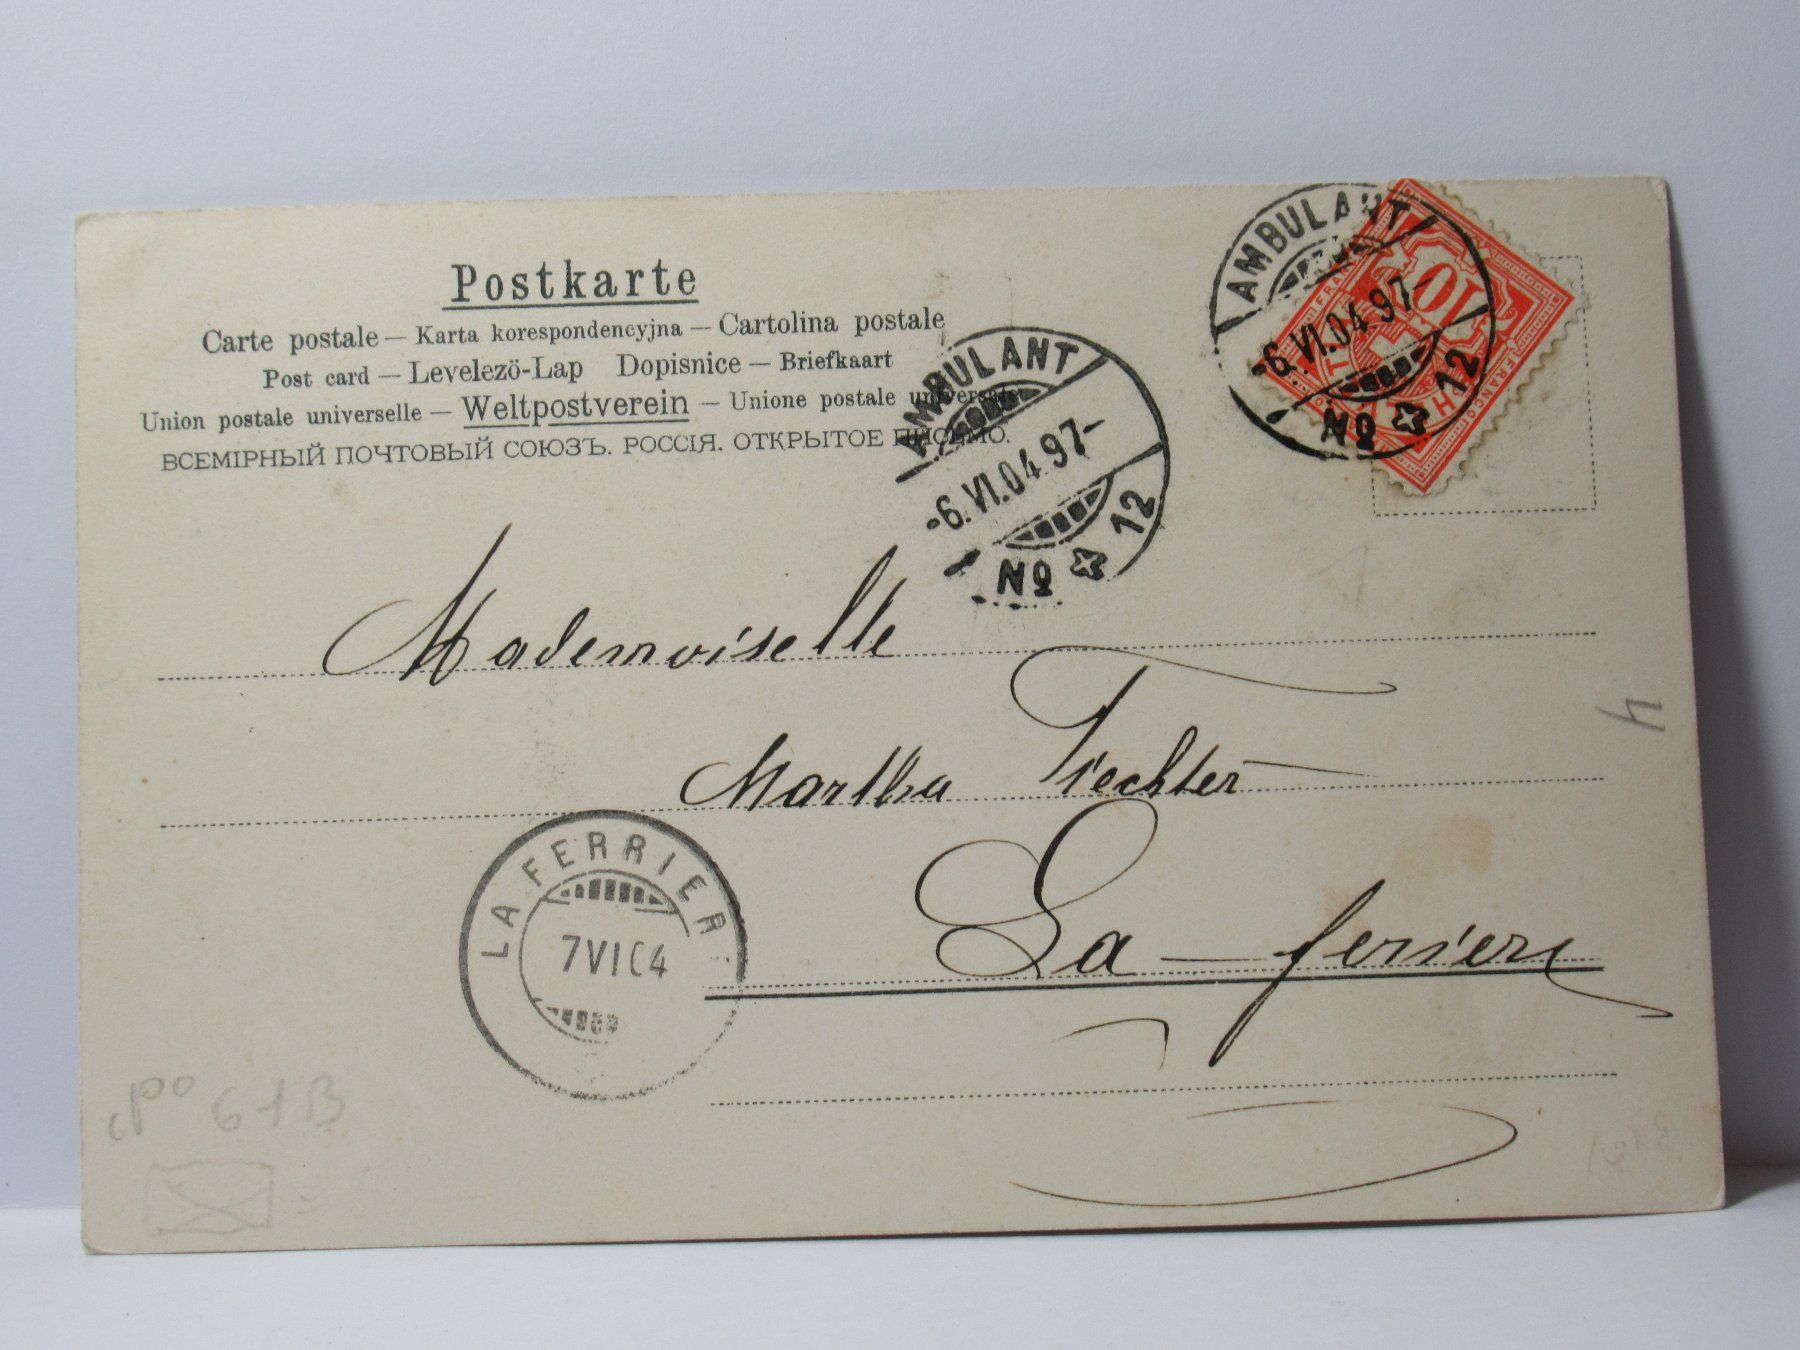 Postkarte
Carte postale — Karta korespondencyjna — Cartolina postale
Post card — Levelezö-Lap Dopisnice — Briefkaart
Union postale universelle — Weltpostverein — Unione postale universale
ВСЕМІРНЫЙ ПОЧТОВЫЙ СОЮЗЪ. РОССІЯ. ОТКРЫТОЕ ПИСЬМО.
AMBULANT
-6.VI.04.97-
No 12
AMBULANT
-6.VI.04.97-
No 12
10
FRANCO
Mademoiselle
Martha Tiechter
La-feriere
LA FERRIER
7 VI 04
61B
4